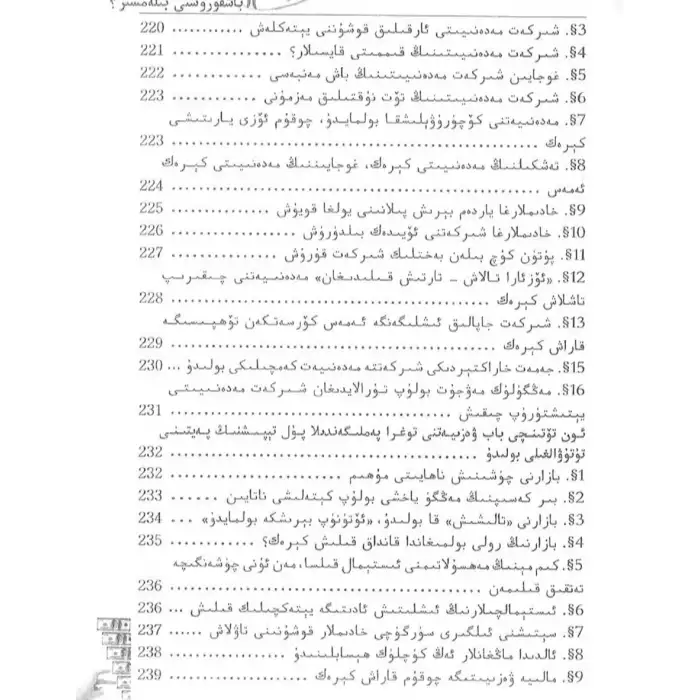 باشقۇرۇشنى بىلەمسىز ؟
3§. شىركەت مەدەنىيىتى ئارقىلىق قوشۇننى يېتەكلەش ........... 220
4§. شىركەت مەدەنىيىتىنىڭ قىممىتى قايسىلار؟ ............. 221
5§. غوجايىن شىركەت مەدەنىيىتىنىڭ باش مەنبەسى ............ 222
6§. شىركەت مەدەنىيىتىنىڭ تۆت نۇقتىلىق مەزمۇنى ............. 223
7§. مەدەنىيەتنى كۆچۈرۈۋېلىشقا بولمايدۇ، چوقۇم ئۆزى يارىتىشى
كېرەك ................................................ 223
8§. تەشكىلنىڭ مەدەنىيىتى كېرەك، غوجايىننىڭ مەدەنىيىتى كېرەك
ئەمەس ................................................ 224
9§. خادىملارغا ياردەم بېرىش پىلانىنى يولغا قويۇش .............. 225
10§. خادىملارغا شىركەتنى ئۆيىدەك بىلدۈرۈش .............. 226
11§. پۈتۈن كۈچ بىلەن بەختلىك شىركەت قۇرۇش ............... 227
12§. «ئۆزئارا تالاش - تارتىش قىلىدىغان» مەدەنىيەتنى چىقىرىپ
تاشلاش كېرەك .......................................... 228
13§. شىركەت جاپالىق ئىشلىگەنگە ئەمەس كۆرسەتكەن تۆھپىسىگە
قاراش كېرەك ........................................... 229
15§. جەمەت خاراكتېرىدىكى شىركەتتە مەدەنىيەت كەمچىلىكى بولىدۇ ... 230
16§. مەڭگۈلۈك مەۋجۇت بولۇپ تۇرالايدىغان شىركەت مەدەنىيىتى
يېتىشتۈرۈپ چىقىش ...................................... 231
ئون تۆتىنچى باب ۋەزىيەتنى توغرا پەملىگەندىلا پۇل تېپىشنىڭ پەيتىنى
تۇتۇۋالغىلى بولىدۇ ..................................... 232
1§. بازارنى چۈشىنىش ناھايىتى مۇھىم ..................... 232
2§. بىر كەسىپنىڭ مەڭگۈ ياخشى بولۇپ كېتەلىشى ناتايىن ...... 233
3§. بازارنى «تالىشىش» قا بولىدۇ، «ئۆتۈنۈپ بېرىشكە بولمايدۇ» ... 234
4§. بازارنىڭ رولى بولمىغاندا قانداق قىلىش كېرەك؟ ............ 235
5§. كىم مېنىڭ مەھسۇلاتىمنى ئىستېمال قىلسا، مەن ئۇنى چۈشەنگىچە
تەتقىق قىلىمەن ........................................ 236
6§. ئىستېمالچىلارنىڭ ئىشلىتىش ئادىتىگە يېتەكچىلىك قىلىش ... 236
7§. سېتىشنى ئىلگىرى سۈرگۈچى خادىملار قوشۇنىنى تاۋلاش ...... 237
8§. ئالدىدا ماڭغانلار ئەڭ كۈچلۈك ھېسابلىنىدۇ ............... 238
9§. مالىيە ۋەزىيىتىگە چوقۇم قاراش كېرەك .................. 239